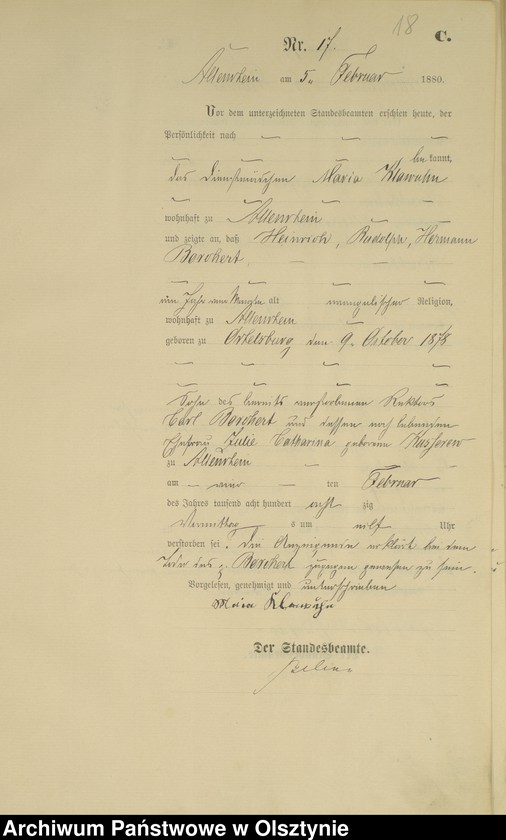 18
C.
Nr. 17.
Allenstein am 5ten Februar 1880.
Vor dem unterzeichneten Standesbeamten erschien heute, der
Persönlichkeit nach
bekannt,
das Dienstmädchen Maria Klawuhn
wohnhaft zu Allenstein
und zeigte an, daß Heinrich, Rudolph, Hermann
Borchert
ein Jahr vier Monate alt evangelischer Religion,
wohnhaft zu Allenstein
geboren zu Ortelsburg den 9. October 1878
Sohn des bereits verstorbenen Rektors
Carl Borchert und dessen noch lebenden
Ehefrau Julie Catharina geborene
zu Allenstein
am vier ten Februar
des Jahres tausend acht hundert acht zig
Vormittags um elf Uhr
verstorben sei. Die Anzeigerin erklärt bei dem
Tode des p. Borchert zugegen gewesen zu sein.
Vorgelesen, genehmigt und unterschrieben
Maria Klawuhn
Der Standesbeamte.
Archiwum Państwowe w Olsztynie